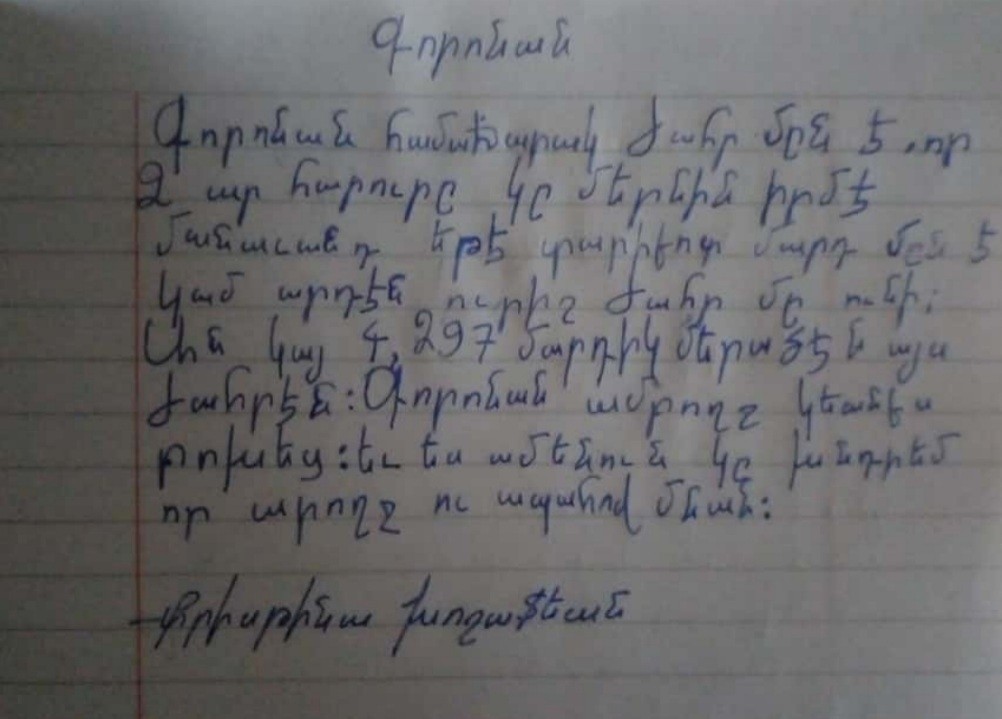 Գորոնան
Գորոնան համաճարակ ժահր մըն է, որ
2 առ հարուրը կը մեռնին իրմէ
մանաւանդ եթէ տարիքոտ մարդ մըն է
կամ արդէն ուրիշ ժահր մը ունի:
Մին կայ 4,297 մարդիկ մեռած են այս
ժահրէն: Գորոնան ամբողջ կեանքս
փոխեց: եւ ես ամենուն կը խնդրեմ
որ առողջ ու ապահով մնան:
Քրիսթինա խոշաֆեան